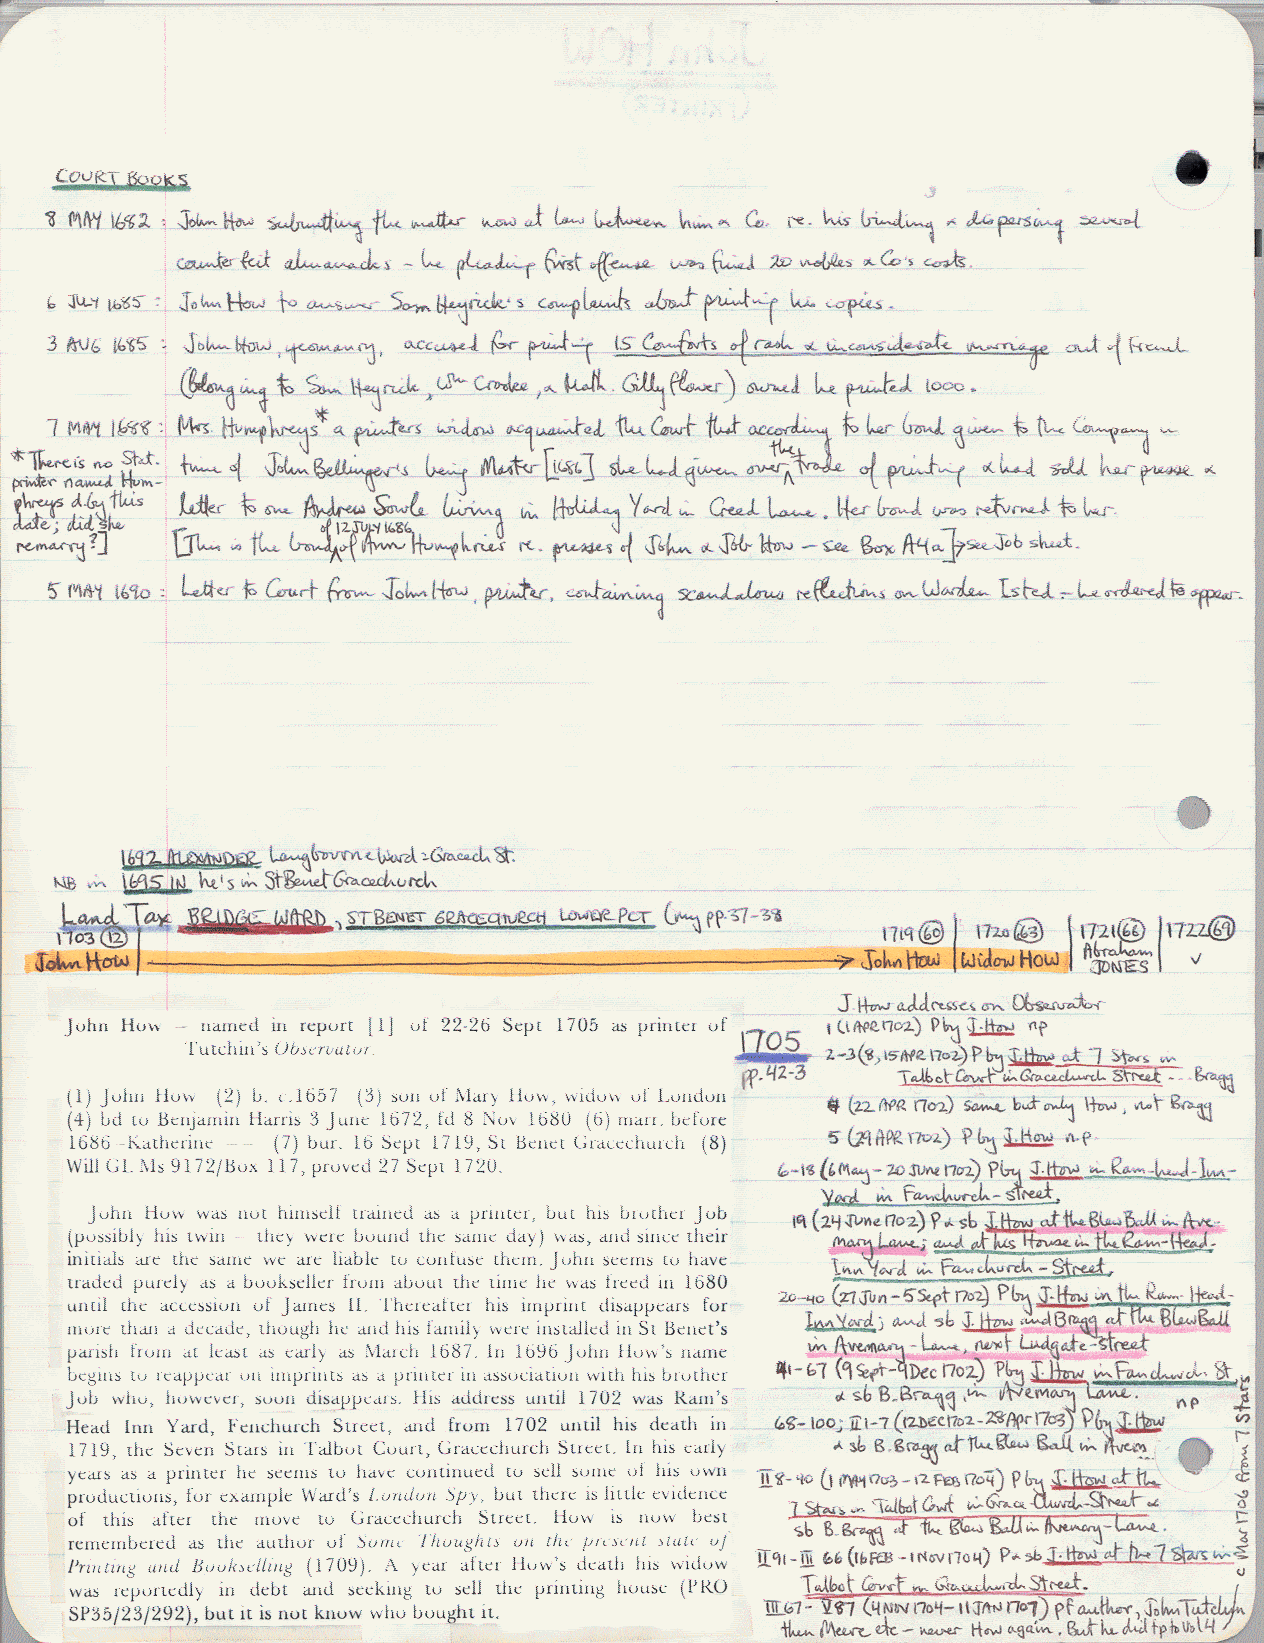 COURT BOOKS
8 MAY 1682 : John How submitting the matter now at law between him & Co. re. his binding & dispersing several
counterfeit almanacks - he pleading first offense was fined 20 nobles & Co's costs.
6 JULY 1685 : John How to answer Sam Heyrick's complaints about printing his copies.
3 AUG 1685 : John How, yeomanry, accused for printing 15 Comforts of rash & inconsiderate marriage out of French
(belonging to Sam Heyrick, Wm Crooke, & Math. Gillyflower) owned he printed 1000.
7 MAY 1688 : Mrs. Humphreys* a printers widow acquainted the Court that according to her bond given to the Company in
time of John Bellinger's being Master [1686] she had given over the trade of printing & had sold her presse &
letter to one Andrew Sowle living in Holiday Yard in Creed Lane. Her bond was returned to her.
[This is the bond of 12 JULY 1686 of Ann Humphries re. presses of John & Job How - see Box A4a] → see Job sheet.
* There is no Stat.
printer named Hum-
phreys d. by this
date; did she
remarry?]
5 MAY 1690 : Letter to Court from John How, printer, containing scandalous reflections on Warden Isted - he ordered to appear.
1692 ALEXANDER Langbourne Ward = Gracech St.
NB in 1695 IN he's in St Benet Gracechurch
Land Tax BRIDGE WARD, ST BENET GRACECHURCH LOWER PCT (my pp. 37-38
1703 (12) 1719 (60) 1720 (63) 1721 (66) 1722 (69)
John How → John How Widow How Abraham JONES ✓
John How – named in report [1] of 22-26 Sept 1705 as printer of
Tutchin's Observator.
1705
pp. 42-3
(1) John How (2) b. c.1657 (3) son of Mary How, widow of London
(4) bd to Benjamin Harris 3 June 1672, fd 8 Nov 1680 (6) marr. before
1686 -Katherine — (7) bur. 16 Sept 1719, St Benet Gracechurch (8)
Will GL Ms 9172/Box 117, proved 27 Sept 1720.
John How was not himself trained as a printer, but his brother Job
(possibly his twin – they were bound the same day) was, and since their
initials are the same we are liable to confuse them. John seems to have
traded purely as a bookseller from about the time he was freed in 1680
until the accession of James II. Thereafter his imprint disappears for
more than a decade, though he and his family were installed in St Benet's
parish from at least as early as March 1687. In 1696 John How's name
begins to reappear on imprints as a printer in association with his brother
Job who, however, soon disappears. His address until 1702 was Ram's
Head Inn Yard, Fenchurch Street, and from 1702 until his death in
1719, the Seven Stars in Talbot Court, Gracechurch Street. In his early
years as a printer he seems to have continued to sell some of his own
productions, for example Ward's London Spy, but there is little evidence
of this after the move to Gracechurch Street. How is now best
remembered as the author of Some Thoughts on the present state of
Printing and Bookselling (1709). A year after How's death his widow
was reportedly in debt and seeking to sell the printing house (PRO
SP35/23/292), but it is not know who bought it.
J. How addresses on Observator
1 (1 APR 1702) P by J. How np
2-3 (8, 15 APR 1702) P by J. How at 7 Stars in
Talbot Court in Gracechurch Street - - - Bragg
4 (22 APR 1702) same but only How, not Bragg
5 (29 APR 1702) P by J. How n.p.
6-18 (6 May - 20 June 1702) P by J. How in Ram-head-Inn-
Yard in Fanchurch-street,
19 (24 June 1702) P & sb J. How at the Blew Ball in Ave-
mary Lane; and at his House in the Ram-Head-
Inn Yard in Fanchurch-Street,
20-40 (27 Jun - 5 Sept 1702) P by J. How in the Ram-Head-
Inn Yard; and sb J. How and Bragg at the Blew Ball
in Avemary-Lane, next Ludgate-street
41-67 (9 Sept - 9 Dec 1702) P by J. How in Fanchurch St,
& sb B. Bragg, in Avemary Lane.
68-100; II 1-7 (12 DEC 1702 - 28 Apr 1703) P by J. How np
& sb B. Bragg at the Blew Ball in Avem.
II 8-40 (1 MAY 1703 - 12 FEB 1704) P by J. How at the
7 Stars in Talbot Court in Grace-Church-Street &
sb B. Bragg at the Blew Ball in Avemary-Lane.
II 91 - III 66 (16 FEB - 1 Nov 1704) P & sb J. How at the 7 Stars in
Talbot Court in Gracechurch Street.
III 67 - V 87 (4 NOV 1704 - 11 JAN 1707) P f author, John Tutchin
then Meere etc - never How again. But he did tp to Vol 4
c Mar 1706 from 7 Stars
John HOW
(PRINTER)